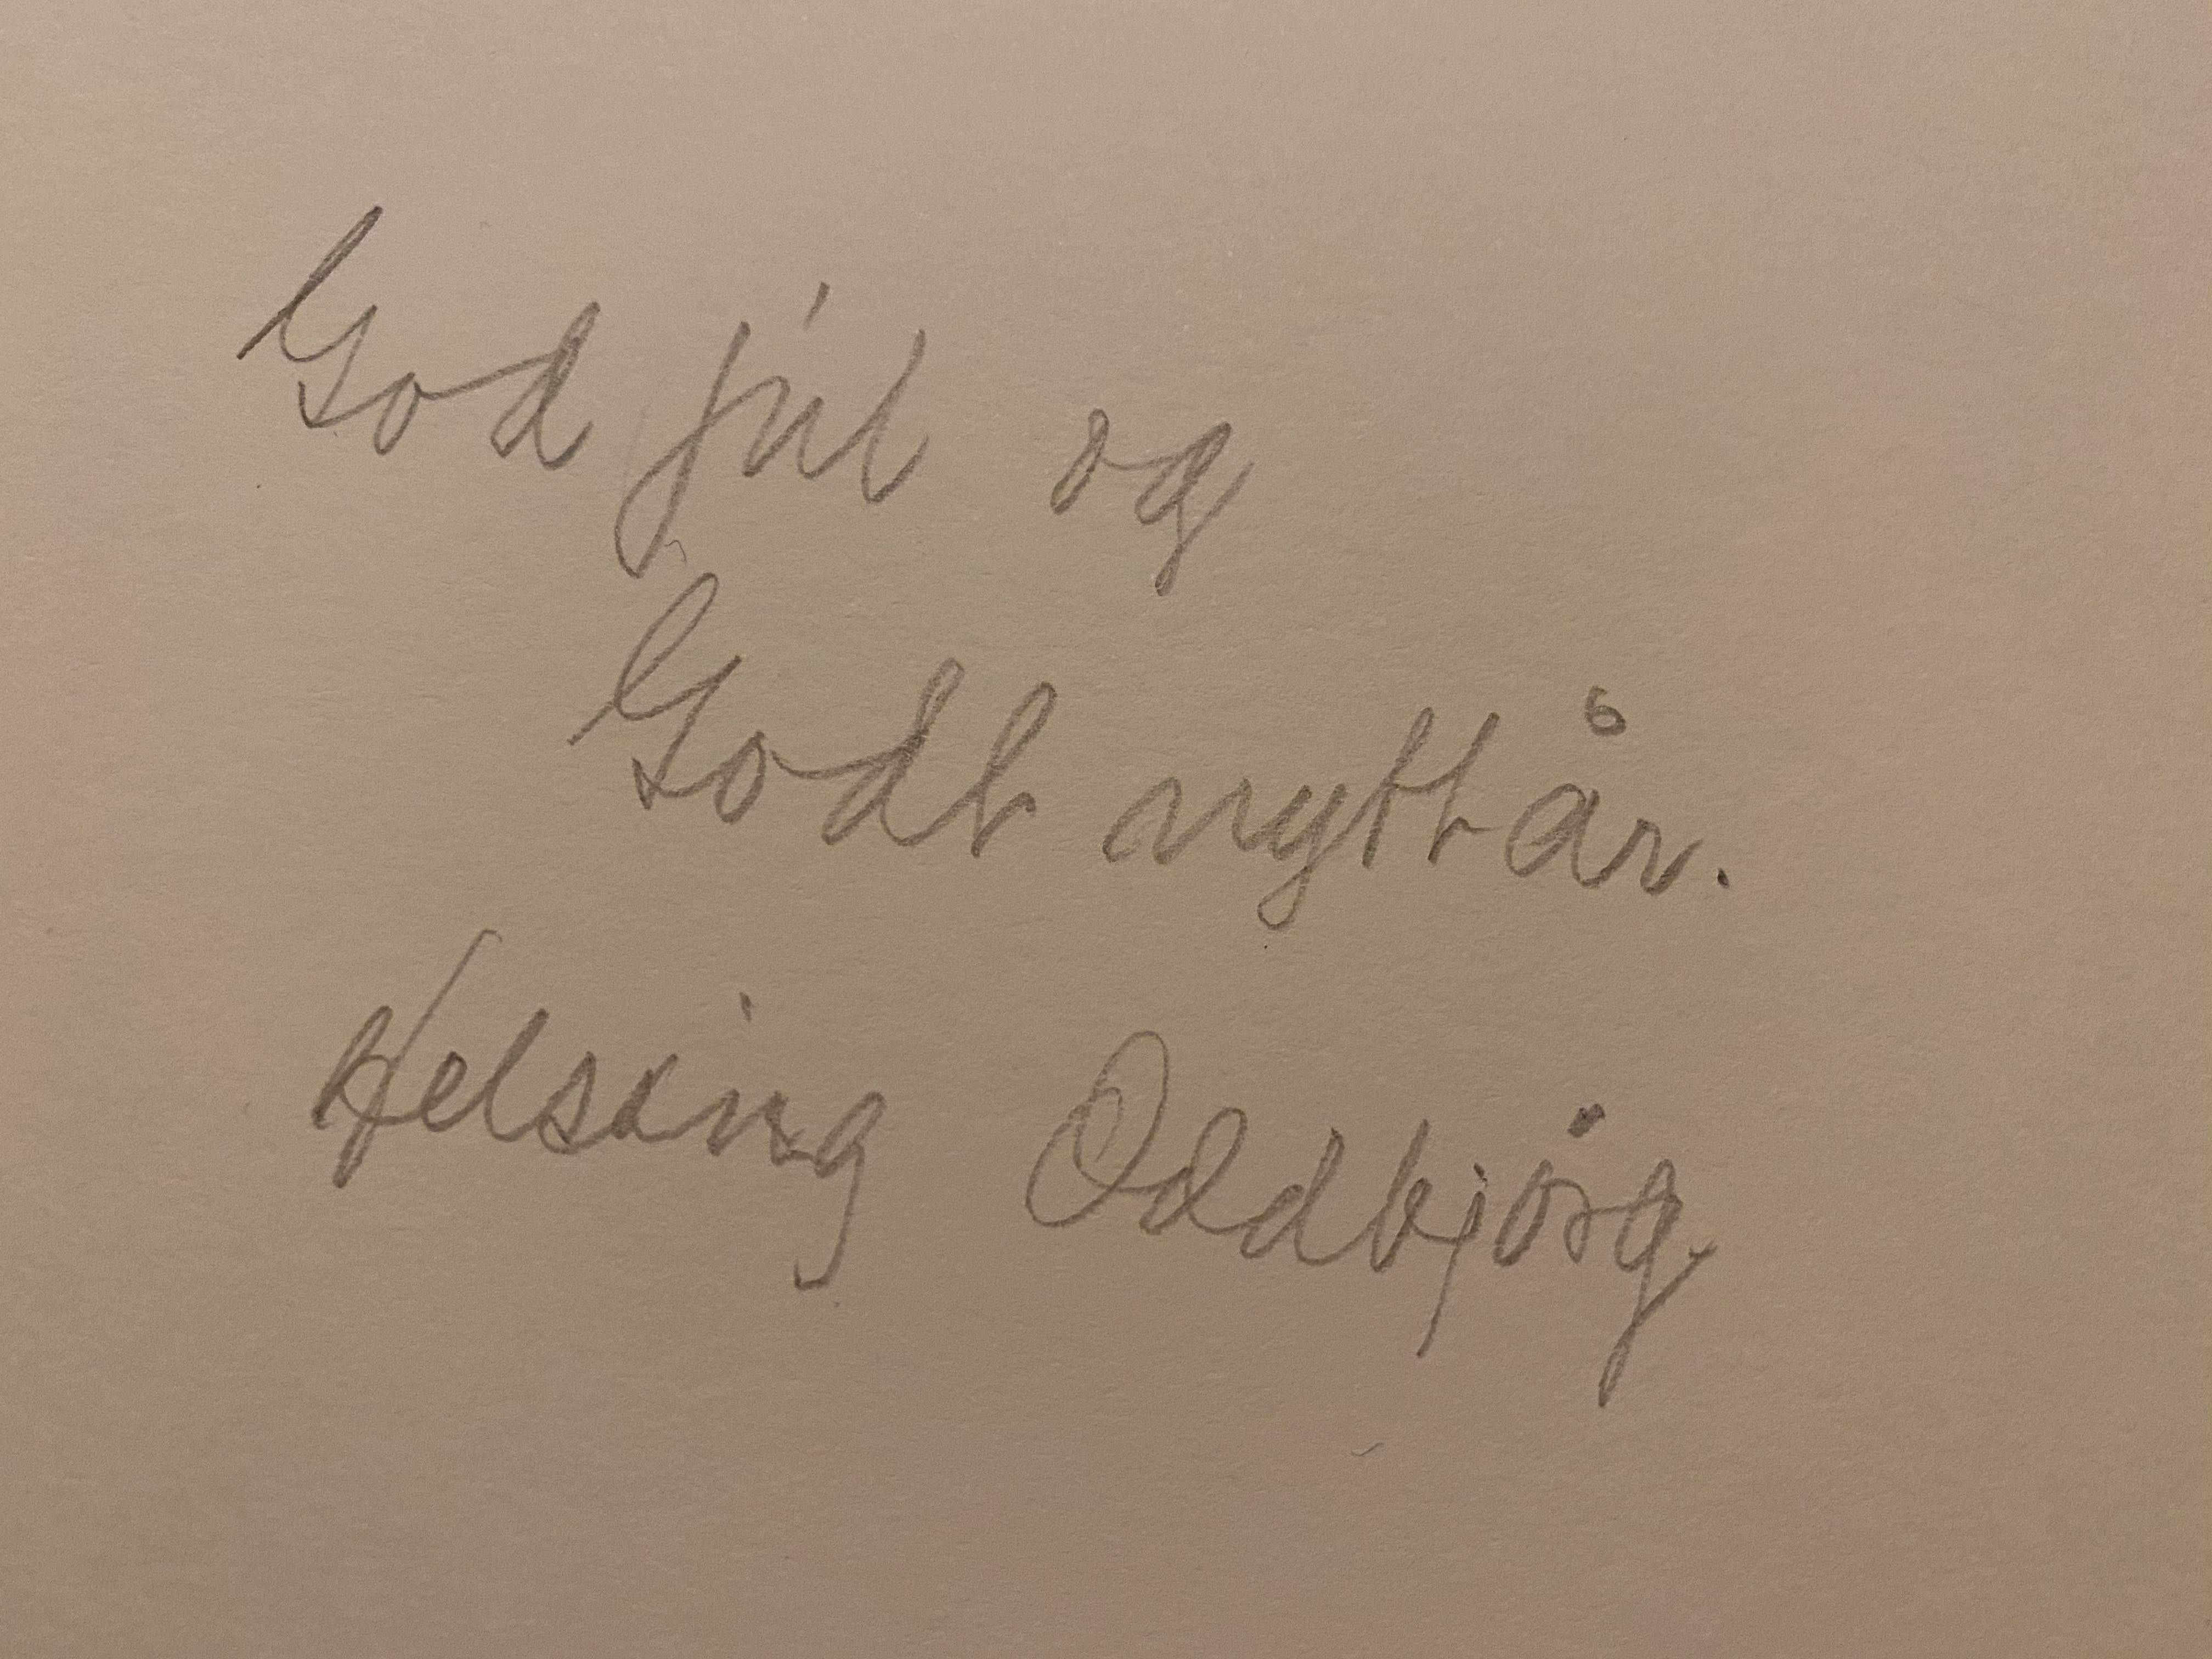 God jul og
Godt nyttår.
Helsing Oddbjörg